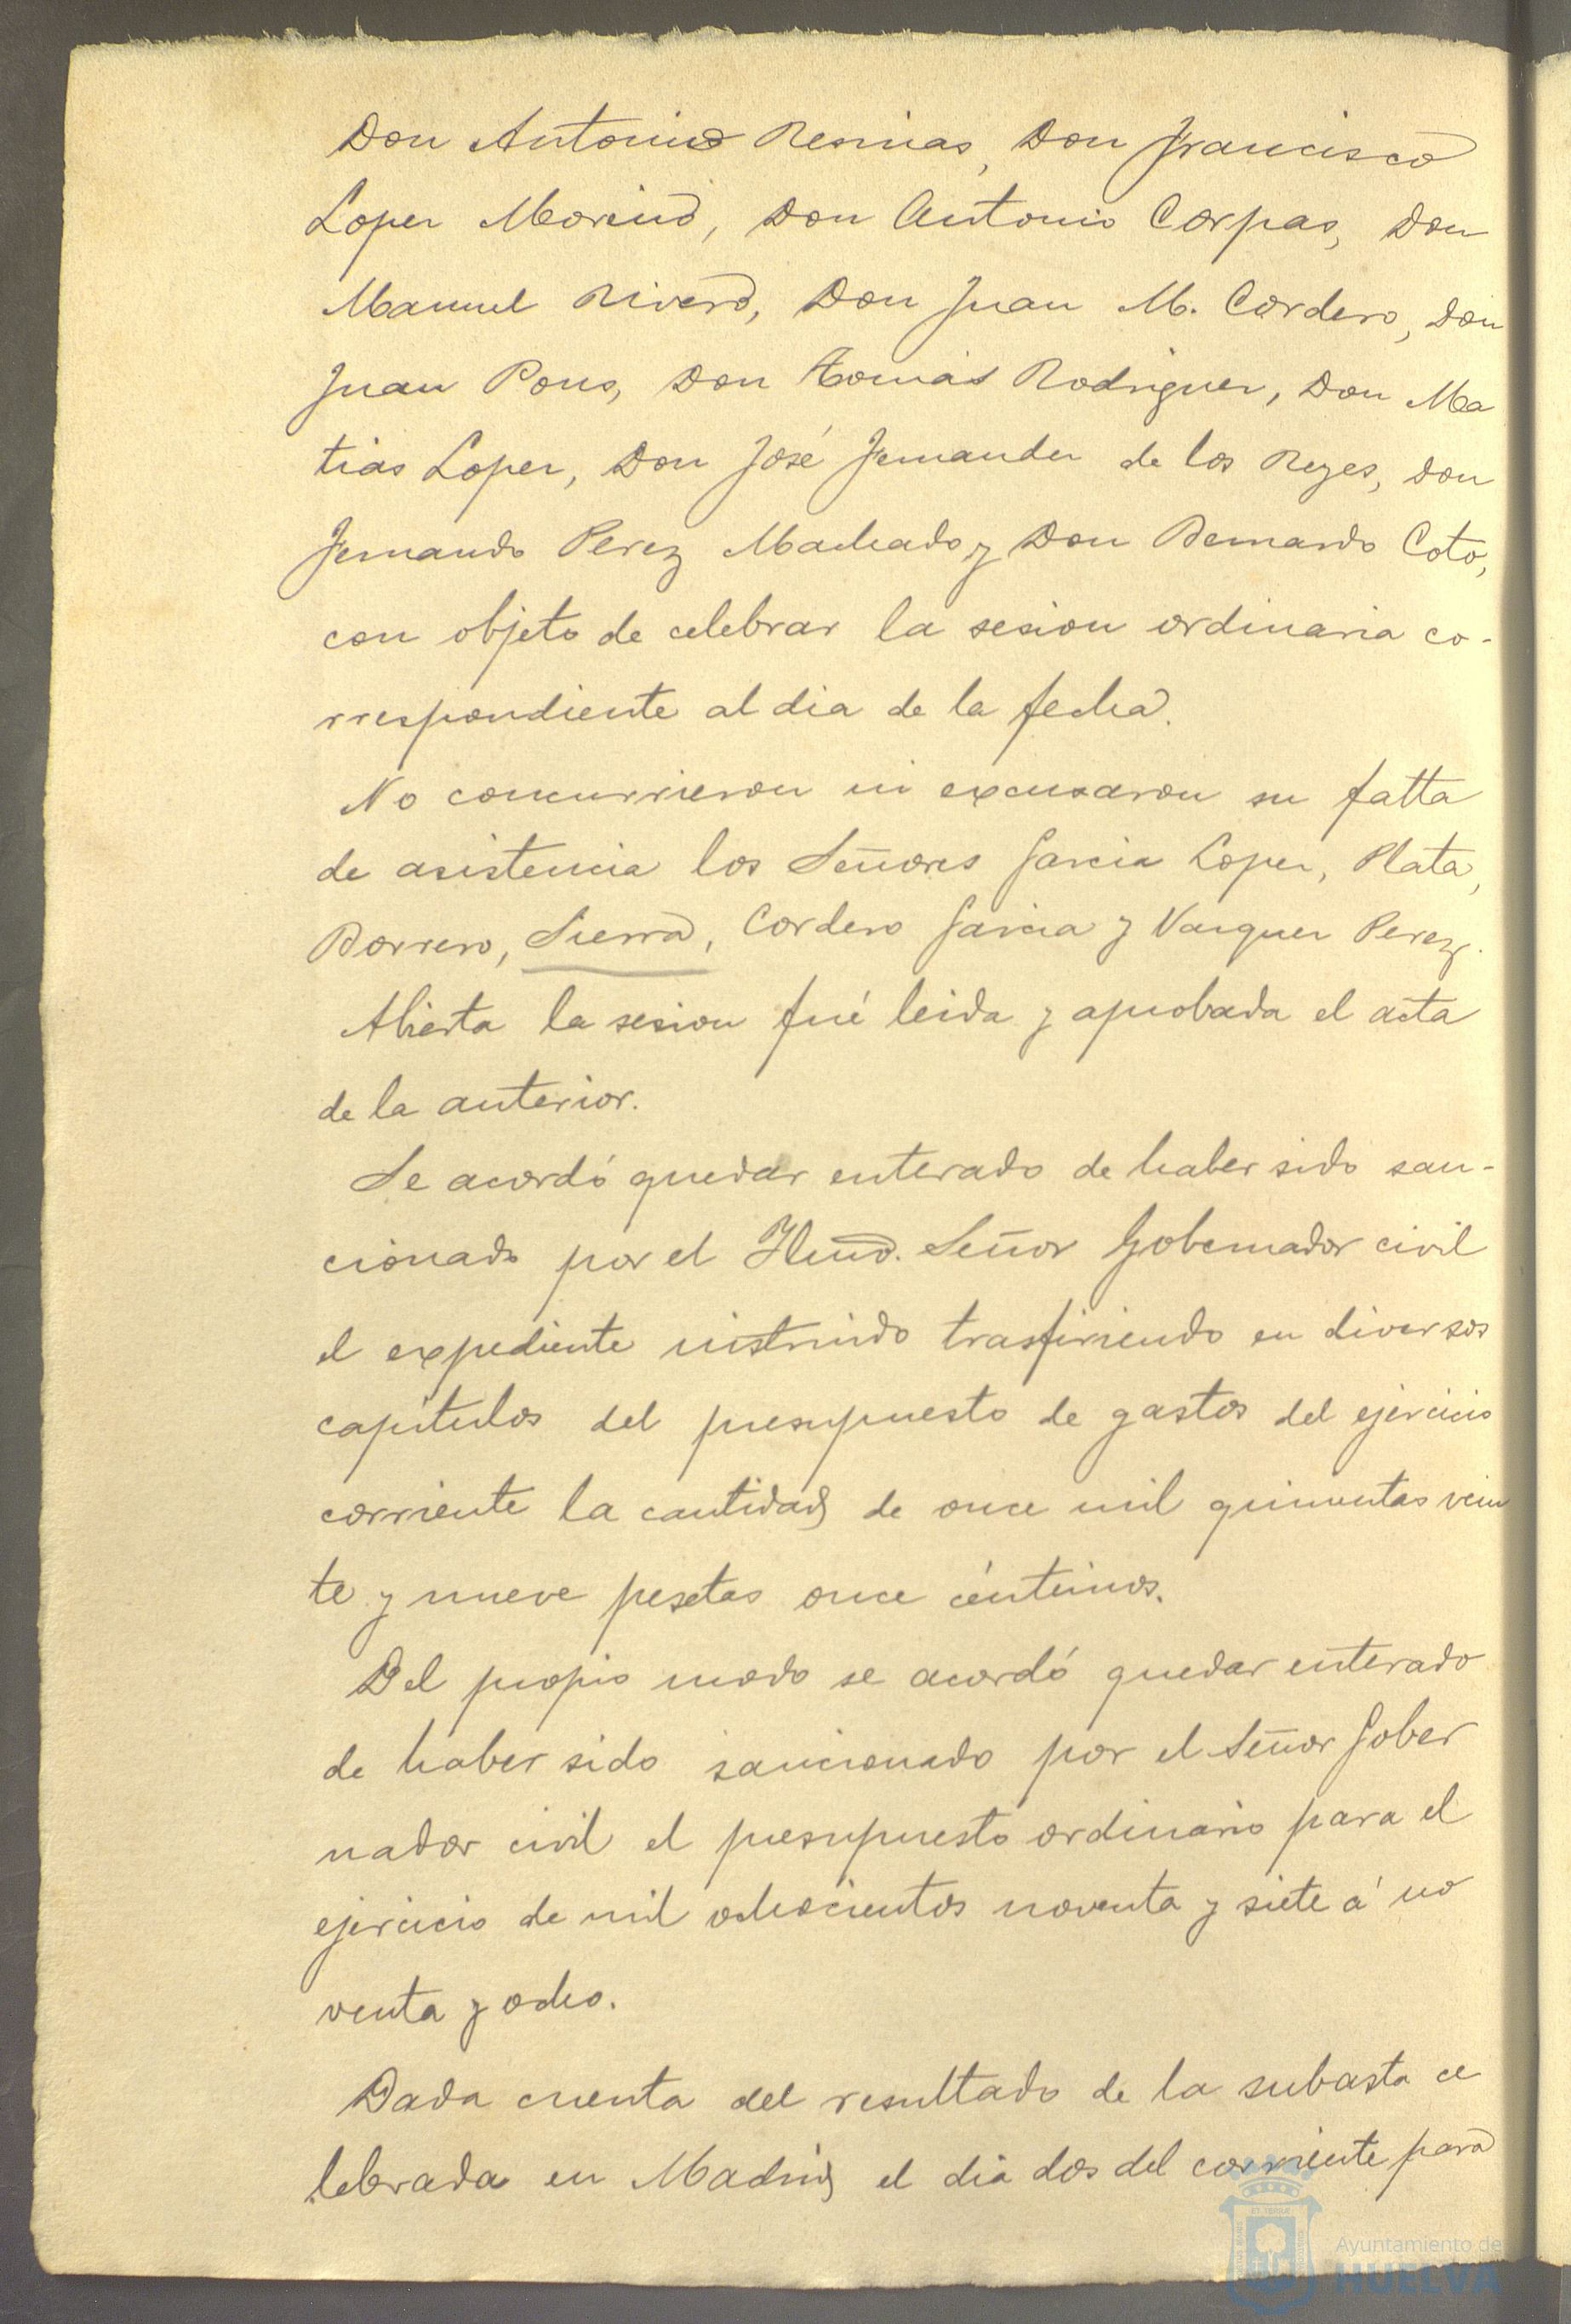 Don Antonio Resinas, Don Francisco
Lopez Moreno, Don Antonio Corpas, Don
Manuel Rivero, Don Juan M. Cordero, Don
Juan Pons, Don Tomás Rodriguez, Don Ma
tias Lopez, Don José Fernandez de los Reyes, Don
Fernando Perez Machado y Don Bernardo Coto,
con objeto de celebrar la sesion ordinaria co-
rrespondiente al dia de la fecha.
No concurrieron ni excusaron su falta
de asistencia los Señores Garcia Lopez, Plata,
Borrero, Sierra, Cordero Garcia y Vazquez Perez.
Abierta la sesion fué leida y aprobada el acta
de la anterior.
Se acordó quedar enterado de haber sido san-
cionado por el Ilmo. Señor Gobernador civil
el expediente instruido trasfiriendo en diversos
capitulos del presupuesto de gastos del ejercicio
corriente la cantidad de once mil quinientas vein
te y nueve pesetas once céntimos.
Del propio modo se acordó quedar enterado
de haber sido sancionado por el Señor Gober
nador civil el presupuesto ordinario para el
ejercicio de mil ochocientos noventa y siete á no
venta y ocho.
Dada cuenta del resultado de la subasta ce
lebrada en Madrid el dia dos del corriente para
Ayuntamiento de
HUELVA